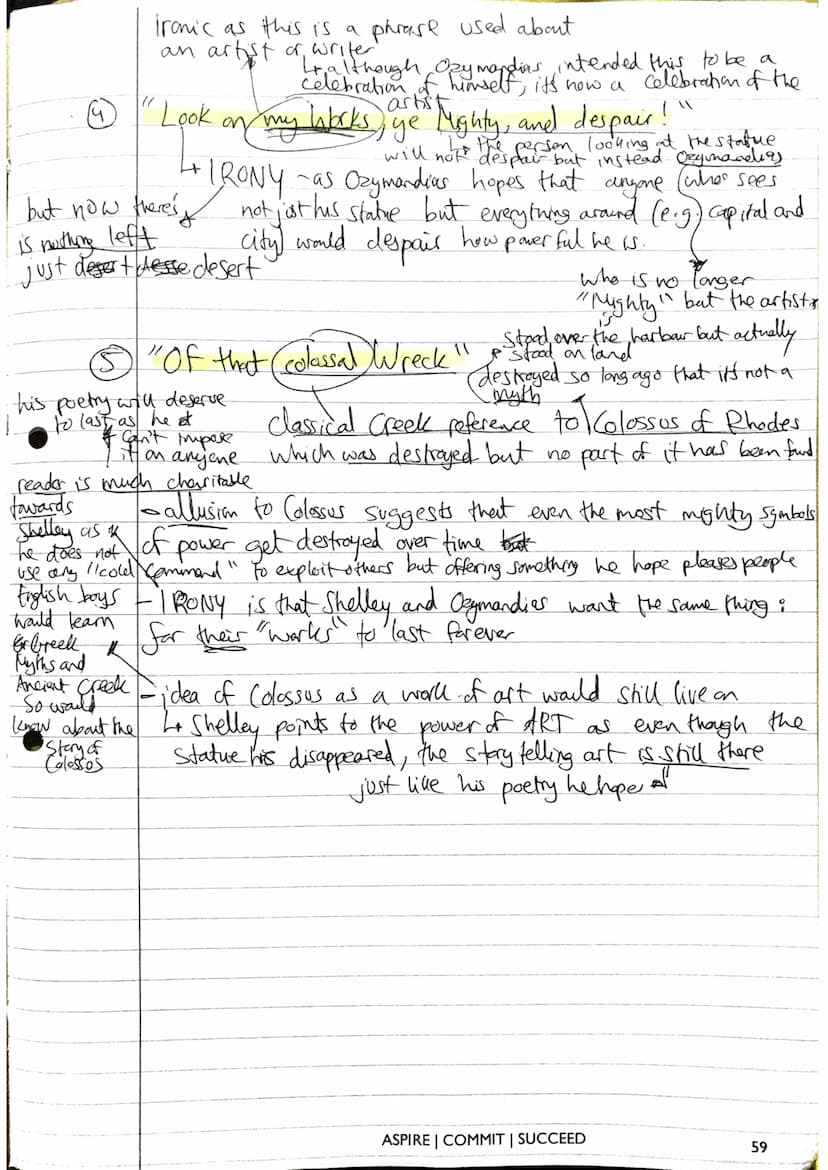 ironic as this is a phrase used about
an artist or writer
↳ although Ozymandias intended this to be a
celebration of himself, it's now a celebration of the
artist
④ "Look on my Works, ye Mighty, and despair!"
↳ the person looking at the statue
will not despair but instead Ozymandias
↳ IRONY - as Ozymandias hopes that anyone who sees
not just his statue but everything around (e.g. capital and
city) would despair how powerful he is.
but now there's
is nothing left
just desert desse desert
who is no longer
"Mighty" but the artist
is
⑤ "Of that colossal Wreck"
stood over the harbour but actually
stood on land
destroyed so long ago that it's not a
myth
classical Greek reference to Colossus of Rhodes
which was destroyed but no part of it has been found
his poetry will deserve
to last as he
can't impose
it on anyone
reader is much charitable
towards
Shelley as
he does not
use any "cold command" to exploit others but offering something he hope pleases people
- allusion to Colossus suggests that even the most mighty symbols
of power get destroyed over time but
- IRONY is that Shelley and Ozymandias want the same thing:
for their "works" to last forever
English boys
would learn
Greek
Myths and
Ancient Greek
so would
know about the
story of
Colossos
- idea of Colossus as a work of art would still live on
↳ Shelley points to the power of ART as even though the
statue his disappeared, the story telling art is still there
just like his poetry he hope
ASPIRE | COMMIT | SUCCEED
59